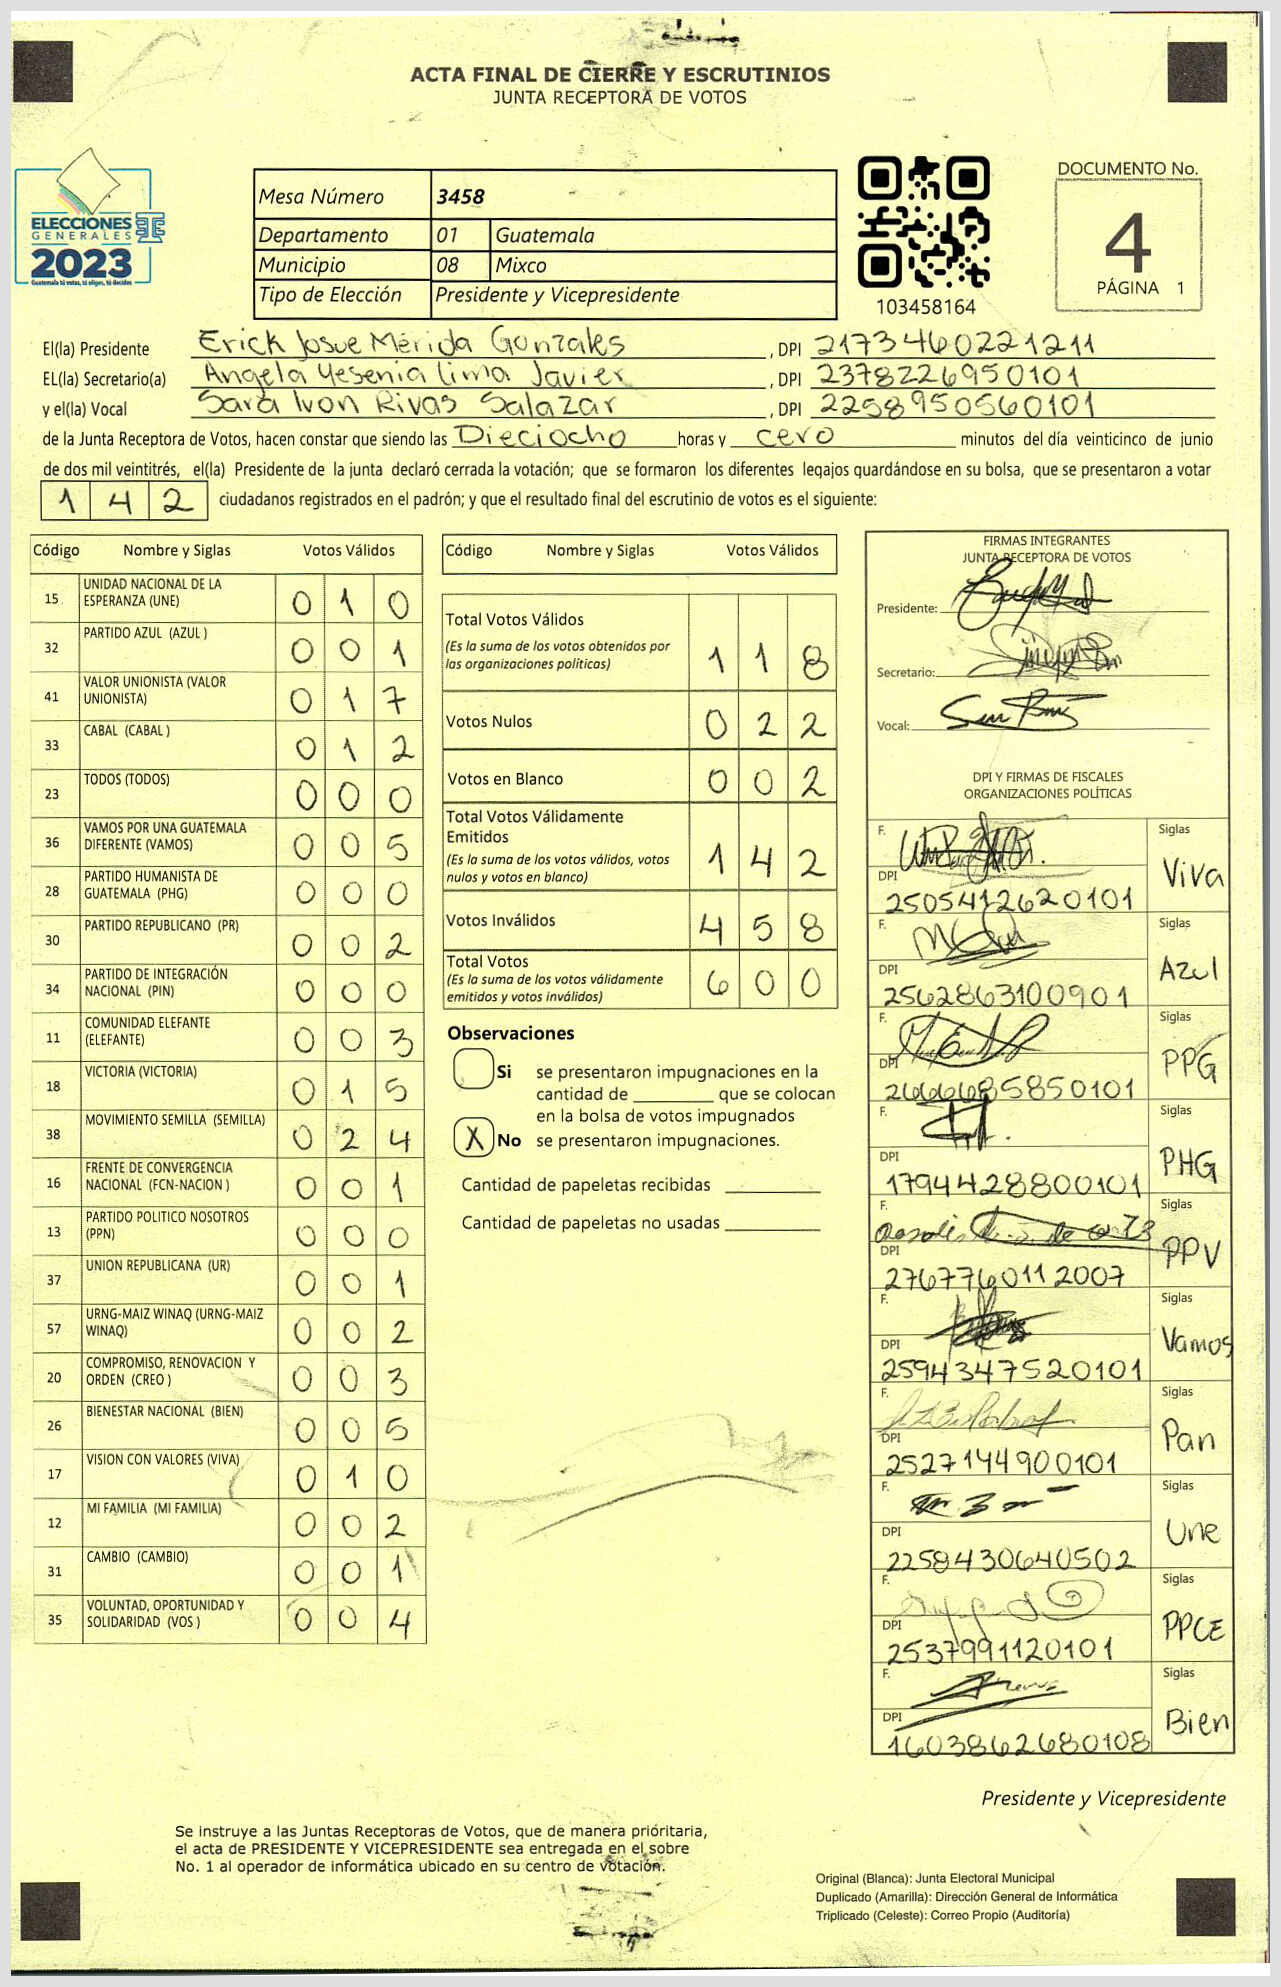 ACTA FINAL DE CIERRE Y ESCRUTINIOS
JUNTA RECEPTORA DE VOTOS
ELECCIONES
GENERALES
2023
Guatemala tú votas, tú eliges, tú decides
Mesa Número 3458
Departamento 01 Guatemala
Municipio 08 Mixco
Tipo de Elección Presidente y Vicepresidente
103458164
DOCUMENTO No.
4
PÁGINA 1
El(la) Presidente Erick Josue Mérida Gonzales , DPI 2173460221211
EL(la) Secretario(a) Angela Yesenia Lima Javier , DPI 2378226950101
y el(la) Vocal Sara Ivon Rivas Salazar , DPI 2258950560101
de la Junta Receptora de Votos, hacen constar que siendo las Dieciocho horas y cero minutos del día veinticinco de junio
de dos mil veintitrés, el(la) Presidente de la junta declaró cerrada la votación; que se formaron los diferentes legajos guardándose en su bolsa, que se presentaron a votar
1 4 2 ciudadanos registrados en el padrón; y que el resultado final del escrutinio de votos es el siguiente:
Código Nombre y Siglas Votos Válidos
15 UNIDAD NACIONAL DE LA
ESPERANZA (UNE) 0 1 0
32 PARTIDO AZUL (AZUL ) 0 0 1
41 VALOR UNIONISTA (VALOR
UNIONISTA) 0 1 7
33 CABAL (CABAL ) 0 1 2
23 TODOS (TODOS) 0 0 0
36 VAMOS POR UNA GUATEMALA
DIFERENTE (VAMOS) 0 0 5
28 PARTIDO HUMANISTA DE
GUATEMALA (PHG) 0 0 0
30 PARTIDO REPUBLICANO (PR) 0 0 2
34 PARTIDO DE INTEGRACIÓN
NACIONAL (PIN) 0 0 0
11 COMUNIDAD ELEFANTE
(ELEFANTE) 0 0 3
18 VICTORIA (VICTORIA) 0 1 5
38 MOVIMIENTO SEMILLA (SEMILLA) 0 2 4
16 FRENTE DE CONVERGENCIA
NACIONAL (FCN-NACION ) 0 0 1
13 PARTIDO POLITICO NOSOTROS
(PPN) 0 0 0
37 UNION REPUBLICANA (UR) 0 0 1
57 URNG-MAIZ WINAQ (URNG-MAIZ
WINAQ) 0 0 2
20 COMPROMISO, RENOVACION Y
ORDEN (CREO ) 0 0 3
26 BIENESTAR NACIONAL (BIEN) 0 0 5
17 VISION CON VALORES (VIVA) 0 1 0
12 MI FAMILIA (MI FAMILIA) 0 0 2
31 CAMBIO (CAMBIO) 0 0 1
35 VOLUNTAD, OPORTUNIDAD Y
SOLIDARIDAD (VOS ) 0 0 4
Código Nombre y Siglas Votos Válidos
Total Votos Válidos
(Es la suma de los votos obtenidos por
las organizaciones políticas) 1 1 8
Votos Nulos 0 2 2
Votos en Blanco 0 0 2
Total Votos Válidamente
Emitidos
(Es la suma de los votos válidos, votos
nulos y votos en blanco) 1 4 2
Votos Inválidos 4 5 8
Total Votos
(Es la suma de los votos válidamente
emitidos y votos inválidos) 6 0 0
Observaciones
Si se presentaron impugnaciones en la
cantidad de ________ que se colocan
en la bolsa de votos impugnados
X No se presentaron impugnaciones.
Cantidad de papeletas recibidas
Cantidad de papeletas no usadas
FIRMAS INTEGRANTES
JUNTA RECEPTORA DE VOTOS
Presidente:
Secretario:
Vocal:
DPI Y FIRMAS DE FISCALES
ORGANIZACIONES POLÍTICAS
F. Siglas
DPI 2505412620101 Viva
F. Siglas
DPI 2562863100901 Azul
F. Siglas
DPI 2666685850101 PPG
F. Siglas
DPI 1794428800101 PHG
F. Siglas
DPI 2767760112007 PPV
F. Siglas
DPI 2594347520101 Vamos
F. Siglas
DPI 2527144900101 Pan
F. Siglas
DPI 2258430640502 Une
F. Siglas
DPI 2537991120101 PPCE
F. Siglas
DPI 1603862680108 Bien
Presidente y Vicepresidente
Se instruye a las Juntas Receptoras de Votos, que de manera prióritaria,
el acta de PRESIDENTE Y VICEPRESIDENTE sea entregada en el sobre
No. 1 al operador de informática ubicado en su centro de votación.
Original (Blanca): Junta Electoral Municipal
Duplicado (Amarilla): Dirección General de Informática
Triplicado (Celeste): Correo Propio (Auditoría)